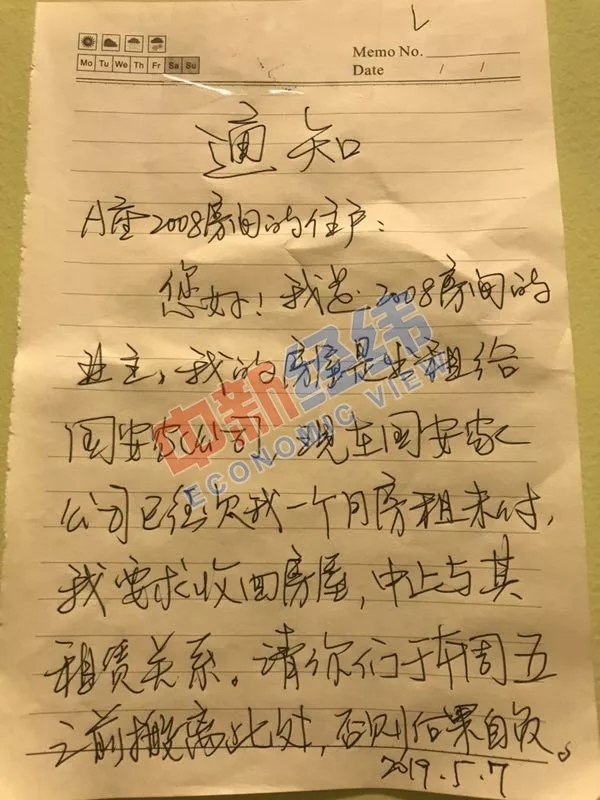 Memo No.
Mo Tu We Th Fr Sa Su
Date / /
通知
A座2008房间的住户：
您好！我是2008房间的
业主，我的房屋是出租给
国安家公司，现在国安家
公司已经欠我一个月房租未付，
我要求收回房屋，中止与其
租赁关系。请你们于本周五
之前搬离此处，否则后果自负。
2019.5.7
中新经纬
ECONOMIC VIEW